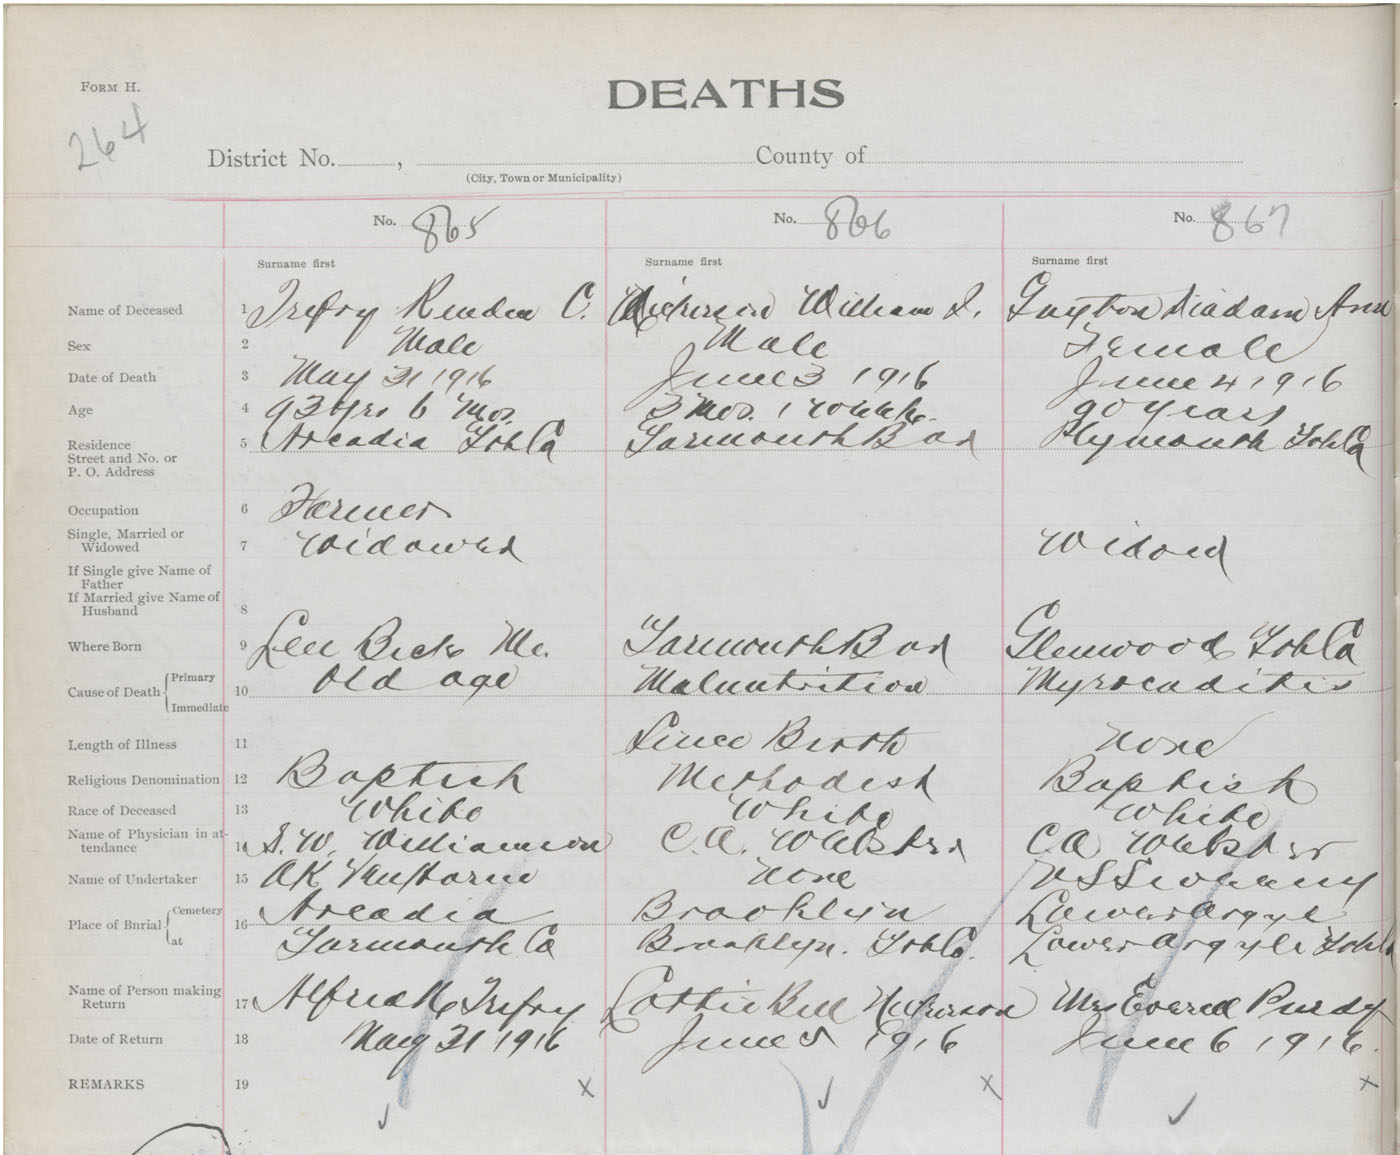 FORM H.
DEATHS
264
District No. , County of
(City, Town or Municipality)
No. 865 No. 866 No. 867
Surname first Surname first Surname first
Name of Deceased 1 Trefry C. William Ann
Sex 2 Male Male Female
Date of Death 3 May 31 1916 June 3 1916 June 4 1916
Age 4 93 yrs 6 Mos. 3 Mos. 1 90 years
Residence 5 Arcadia Yarmouth Bar Plymouth
Street and No. or
P. O. Address
Occupation 6 Farmer
Single, Married or
Widowed 7 Widower Widow
If Single give Name of
Father
If Married give Name of
Husband 8
Where Born 9 Yarmouth Bar Glenwood
Cause of Death Primary 10 Old age Malnutrition
Immediate
Length of Illness 11 Since Birth None
Religious Denomination 12 Baptist Methodist Baptist
Race of Deceased 13 White White White
Name of Physician in at-
tendance 14 S. W. Williamson C. A. Webster C A Webster
Name of Undertaker 15 A K None V S Sweeney
Place of Burial Cemetery 16 Arcadia Brooklyn Lower Argyle
at Yarmouth Co Brooklyn. Lower Argyle
Name of Person making
Return 17 Alfred Trefry Bell Nickerson Mrs Purdy
Date of Return 18 May 31 1916 June 5 1916 June 6 1916.
REMARKS 19 x x x